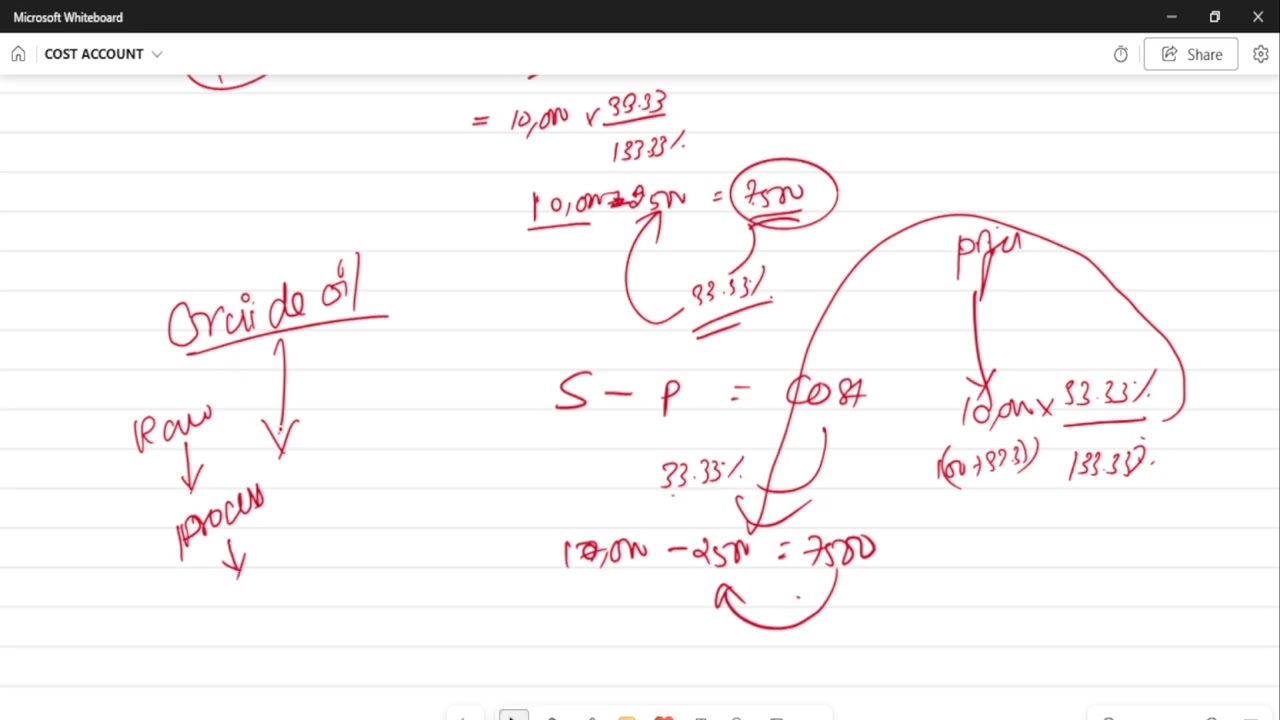 Microsoft Whiteboard
COST ACCOUNT
Share
= 10,000 x 33.33
133.33%
10,000 - 2500 = 7500
33.33%
Profit
Cruide oil
S - P = Cost
10,000 x 33.33%
(100+33.33) 133.33%
Raw
33.33%
Process
10,000 - 2500 = 7500